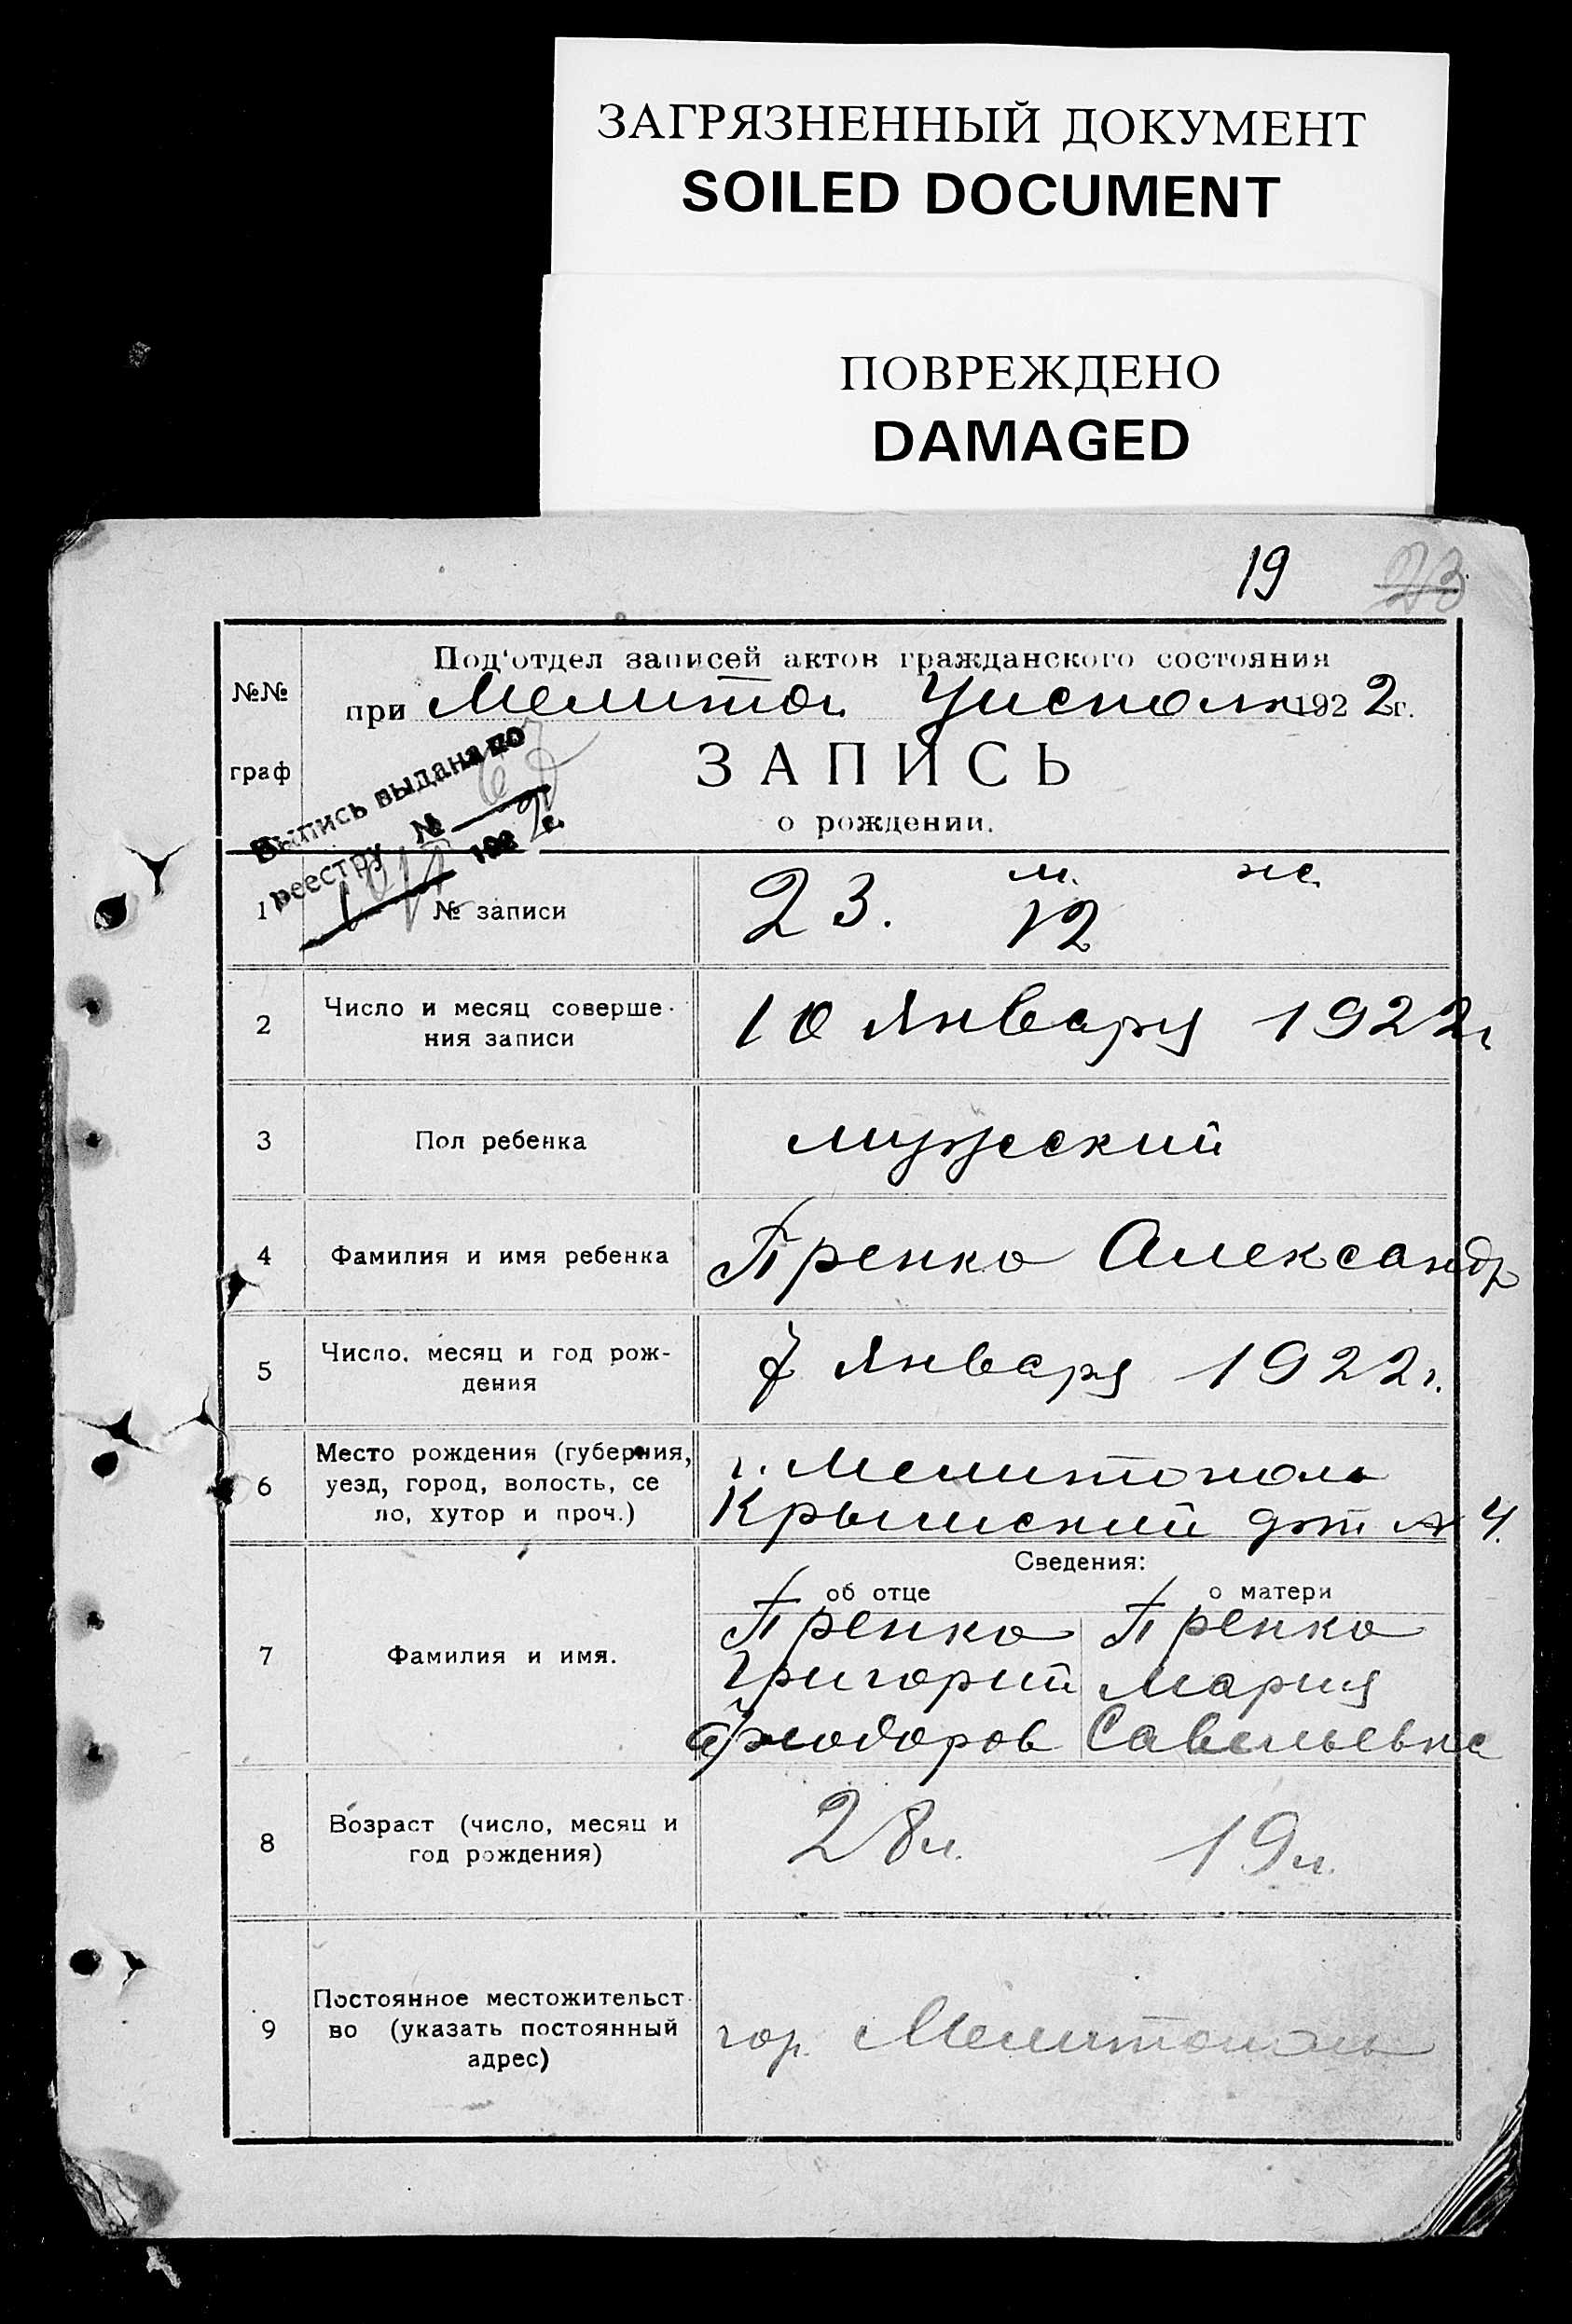 ЗАГРЯЗНЕННЫЙ ДОКУМЕНТ
SOILED DOCUMENT
ПОВРЕЖДЕНО
DAMAGED
19 23
№№ граф
Под'отдел записей актов гражданского состояния
при Мелитоп. Уисполк 192 2г.
ЗАПИСЬ
о рождении.
Выпись выдана по
реестру № 192 2 г.
1 № записи 23. м. 12 ж.
2 Число и месяц соверше-
ния записи 10 Января 1922г
3 Пол ребенка мужеский
4 Фамилия и имя ребенка Пренко Александр
5 Число, месяц и год рож-
дения 7 Января 1922г.
6 Место рождения (губерния,
уезд, город, волость, се
ло, хутор и проч.)
г. Мелитополь
Крымский №4.
Сведения:
об отце о матери
7 Фамилия и имя.
Пренко Пренко
Григорий Мария
Феодоров Савельевна
8 Возраст (число, месяц и
год рождения) 28л. 19л.
9 Постоянное местожительст
во (указать постоянный
адрес)
гор. Мелитополь